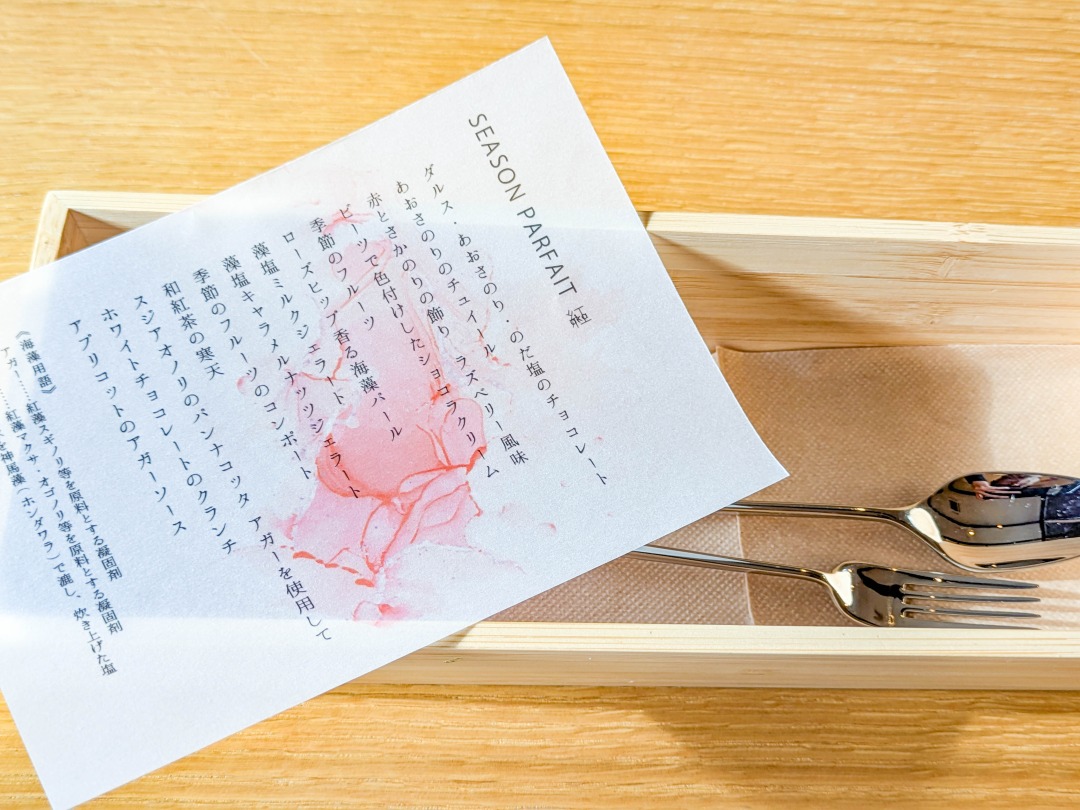 SEASON PARFAIT 紅
ダルス・あおさのり・のだ塩のチョコレート
あおさのりのチュイール ラズベリー風味
赤とさかのりの飾り
ビーツで色付けしたショコラクリーム
季節のフルーツ
ローズヒップ香る海藻パール
藻塩ミルクジェラート
藻塩キャラメルナッツジェラート
季節のフルーツのコンポート
和紅茶の寒天
スジアオノリのパンナコッタ アガーを使用して
ホワイトチョコレートのクランチ
アプリコットのアガーソース
《海藻用語》
アガー
紅藻スギノリ等を原料とする凝固剤
紅藻マクサ・オゴノリ等を原料とする凝固剤
を神馬藻(ホンダワラ)で漉し、炊き上げた塩